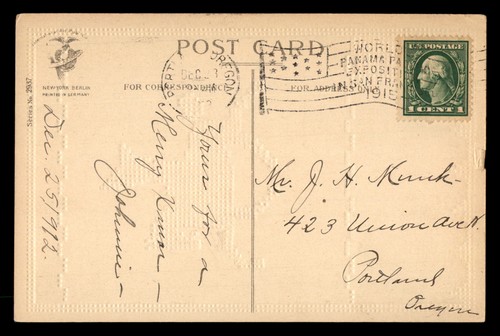 POST CARD
NEW YORK BERLIN
PRINTED IN GERMANY
Series No. 2937
FOR CORRESPONDENCE
FOR ADDRESS
OREGON
DEC
WORLD
PANAMA PA
EXPOSITI
IN SAN FRAN
1915
U.S. POSTAGE
1 CENT 1
Dec. 25/912.
Yours for a
Merry Xmas—
Johnnie—
Mr. J. H. Munk—
423 Union Ave N.
Portland
Oregon